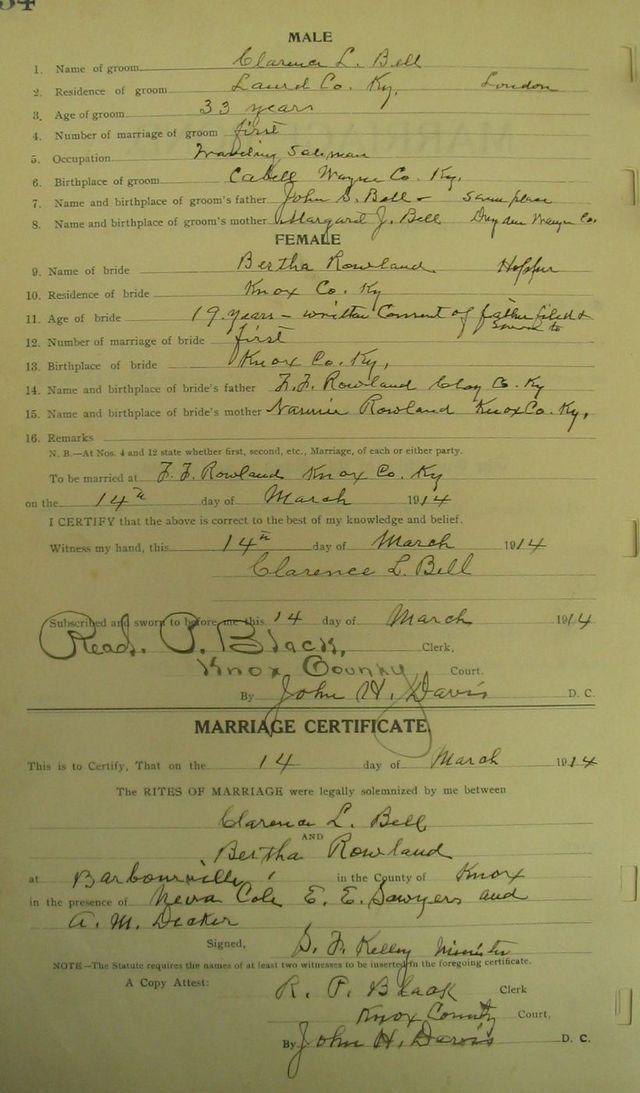 34
MALE
1. Name of groom Clarence L. Bell
2. Residence of groom Laurel Co. Ky, London
3. Age of groom 33 years
4. Number of marriage of groom first
5. Occupation Traveling Salesman
6. Birthplace of groom Cabell Wayne Co. Ky.
7. Name and birthplace of groom's father John S. Bell - same place
8. Name and birthplace of groom's mother Margaret J. Bell Dryden Wayne Co.
FEMALE
9. Name of bride Bertha Rowland Hopper
10. Residence of bride Knox Co. Ky
11. Age of bride 19 years - written Consent of father filed & sworn to
12. Number of marriage of bride first
13. Birthplace of bride Knox Co. Ky,
14. Name and birthplace of bride's father F. F. Rowland Clay Co. Ky
15. Name and birthplace of bride's mother Nannie Rowland Knox Co. Ky,
16. Remarks
N. B.—At Nos. 4 and 12 state whether first, second, etc., Marriage, of each or either party.
To be married at F. F. Rowland Knox Co. Ky
on the 14th day of March 1914
I CERTIFY that the above is correct to the best of my knowledge and belief.
Witness my hand, this 14th day of March 1914
Clarence L. Bell
Subscribed and sworn to before me this 14 day of March 1914
Read. P. Black, Clerk,
Knox County Court.
By John H. Davis D. C.
MARRIAGE CERTIFICATE
This is to Certify, That on the 14 day of March 1914
The RITES OF MARRIAGE were legally solemnized by me between
Clarence L. Bell
AND
Bertha Rowland
at Barbourville, in the County of Knox
in the presence of Neva Cole E. E. Sawyers and
A. M. Decker
Signed, S. F. Kelley Minister
NOTE—The Statute requires the names of at least two witnesses to be inserted in the foregoing certificate.
A Copy Attest: R. P. Black Clerk
Knox County Court,
By John H. Davis D. C.